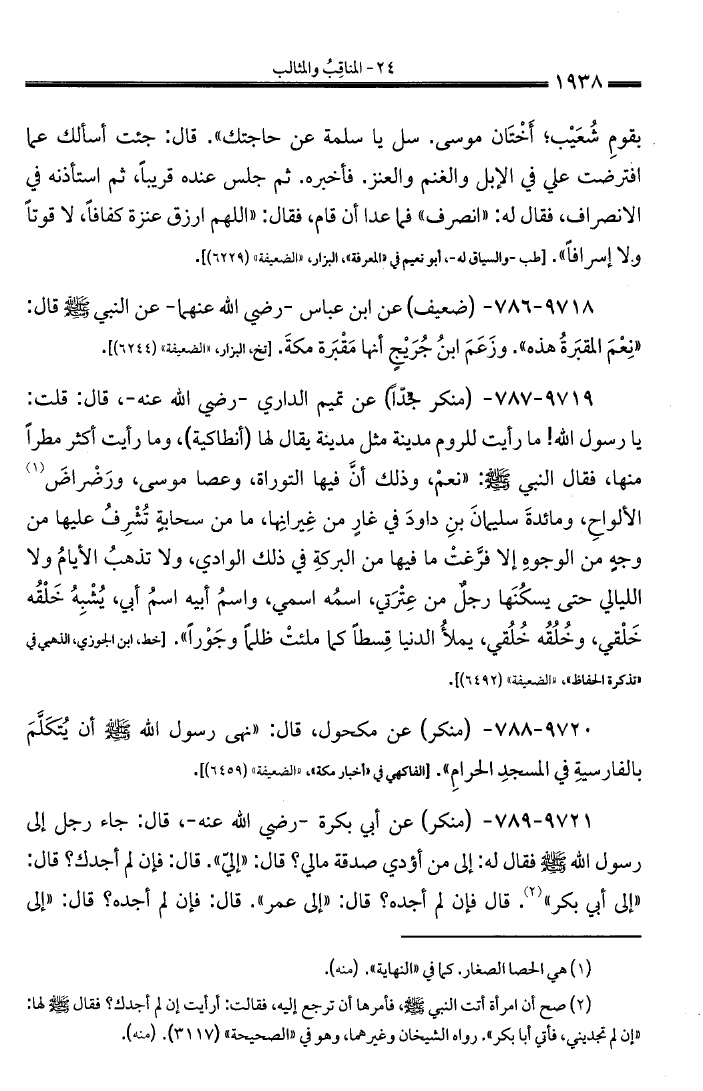 ٢٤- المناقِبُ والمثالب
١٩٣٨
بقومِ شُعَيْب؛ أَخْتَان موسى. سل يا سلمة عن حاجتك». قال: جئت أسألك عما
افترضت علي في الإبل والغنم والعنز. فأخبره. ثم جلس عنده قريباً، ثم استأذنه في
الانصراف، فقال له: «انصرف» فما عدا أن قام، فقال: «اللهم ارزق عنزة كفافاً، لا قوتاً
ولا إسرافاً». [طب -والسياق له-، أبو نعيم في «المعرفة»، البزار، «الضعيفة» (٦٢٢٩)].
٩٧١٨-٧٨٦- (ضعيف) عن ابن عباس -رضي الله عنهما- عن النبي ﷺ قال:
«نِعْمَ المقبَرَةُ هذه». وزَعَمَ ابنُ جُرَيْجٍ أنها مَقْبَرَة مكةَ. [تخ، البزار، «الضعيفة» (٦٢٤٤)].
٩٧١٩-٧٨٧- (منكر جدّاً) عن تميم الداري -رضي الله عنه-، قال: قلت:
يا رسول الله! ما رأيت للروم مدينة مثل مدينة يقال لها (أنطاكية)، وما رأيت أكثر مطراً
منها، فقال النبي ﷺ: «نعمْ، وذلك أنَّ فيها التوراة، وعصا موسى، ورَضْراضَ(١)
الألواحِ، ومائدةَ سليمانَ بنِ داودَ في غارٍ من غِيرانِها، ما من سحابةٍ تُشْرِفُ عليها من
وجهٍ من الوجوهِ إلا فرَّغتْ ما فيها من البركةِ في ذلك الوادي، ولا تذهبُ الأيامُ ولا
الليالي حتى يسكُنَها رجلٌ من عِتْرَتي، اسمُه اسمي، واسمُ أبيه اسمُ أبي، يُشْبِهُ خَلْقُه
خَلْقي، وخُلُقُه خُلُقي، يملأُ الدنيا قِسطاً كما ملئتْ ظلماً وجَوْراً». [خط، ابن الجوزي، الذهبي في
«تذكرة الحفاظ»، «الضعيفة» (٦٤٩٢)].
٩٧٢٠-٧٨٨- (منكر) عن مكحول، قال: «نهى رسول الله ﷺ أن يُتَكلَّمَ
بالفارسيةِ في المسجدِ الحرامِ». [الفاكهي في «أخبار مكة»، «الضعيفة» (٦٤٥٩)].
٩٧٢١-٧٨٩- (منكر) عن أبي بكرة -رضي الله عنه-، قال: جاء رجل إلى
رسول الله ﷺ فقال له: إلى من أؤدي صدقة مالي؟ قال: «إليّ». قال: فإن لم أجدك؟ قال:
«إلى أبي بكر»(٢). قال فإن لم أجده؟ قال: «إلى عمر». قال: فإن لم أجده؟ قال: «إلى
(١) هي الحصا الصغار. كما في «النهاية». (منه).
(٢) صح أن امرأة أتت النبي ﷺ، فأمرها أن ترجع إليه، فقالت: أرأيت إن لم أجدك؟ فقال ﷺ لها:
«إن لم تجديني، فأتي أبا بكر». رواه الشيخان وغيرهما، وهو في «الصحيحة» (٣١١٧). (منه).